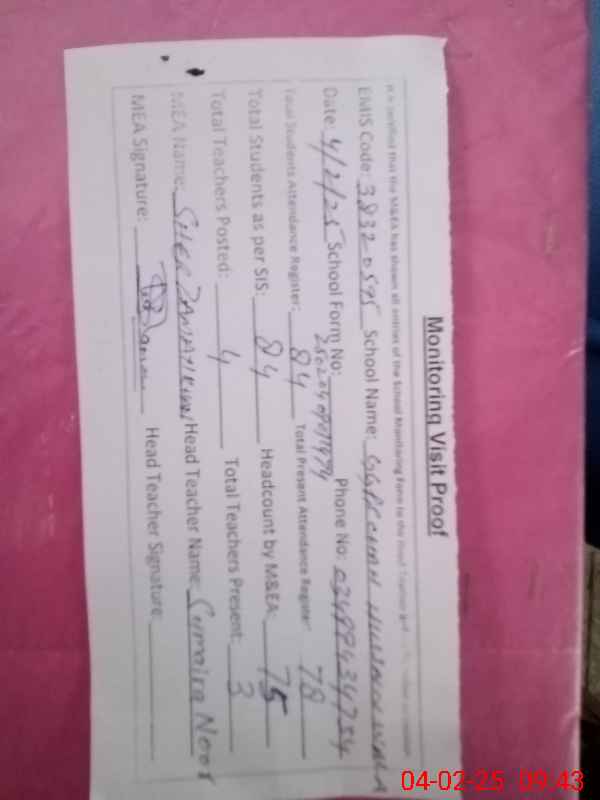 Monitoring Visit Proof
It is certified that the M&EA has shown all entries of the School Monitoring Form to the Head Teacher and
EMIS Code: 38320595 School Name: GGPS CHAH
Date: 4/2/25 School Form No: Phone No: 03499434754
Total Students Attendance Register: 84 Total Present Attendance Register: 78
Total Students as per SIS: 84 Headcount by M&EA: 75
Total Teachers Posted: 4 Total Teachers Present: 3
MEA Name: SHER Head Teacher Name: Sumaira Noor
MEA Signature: Head Teacher Signature:
04-02-25 09:43